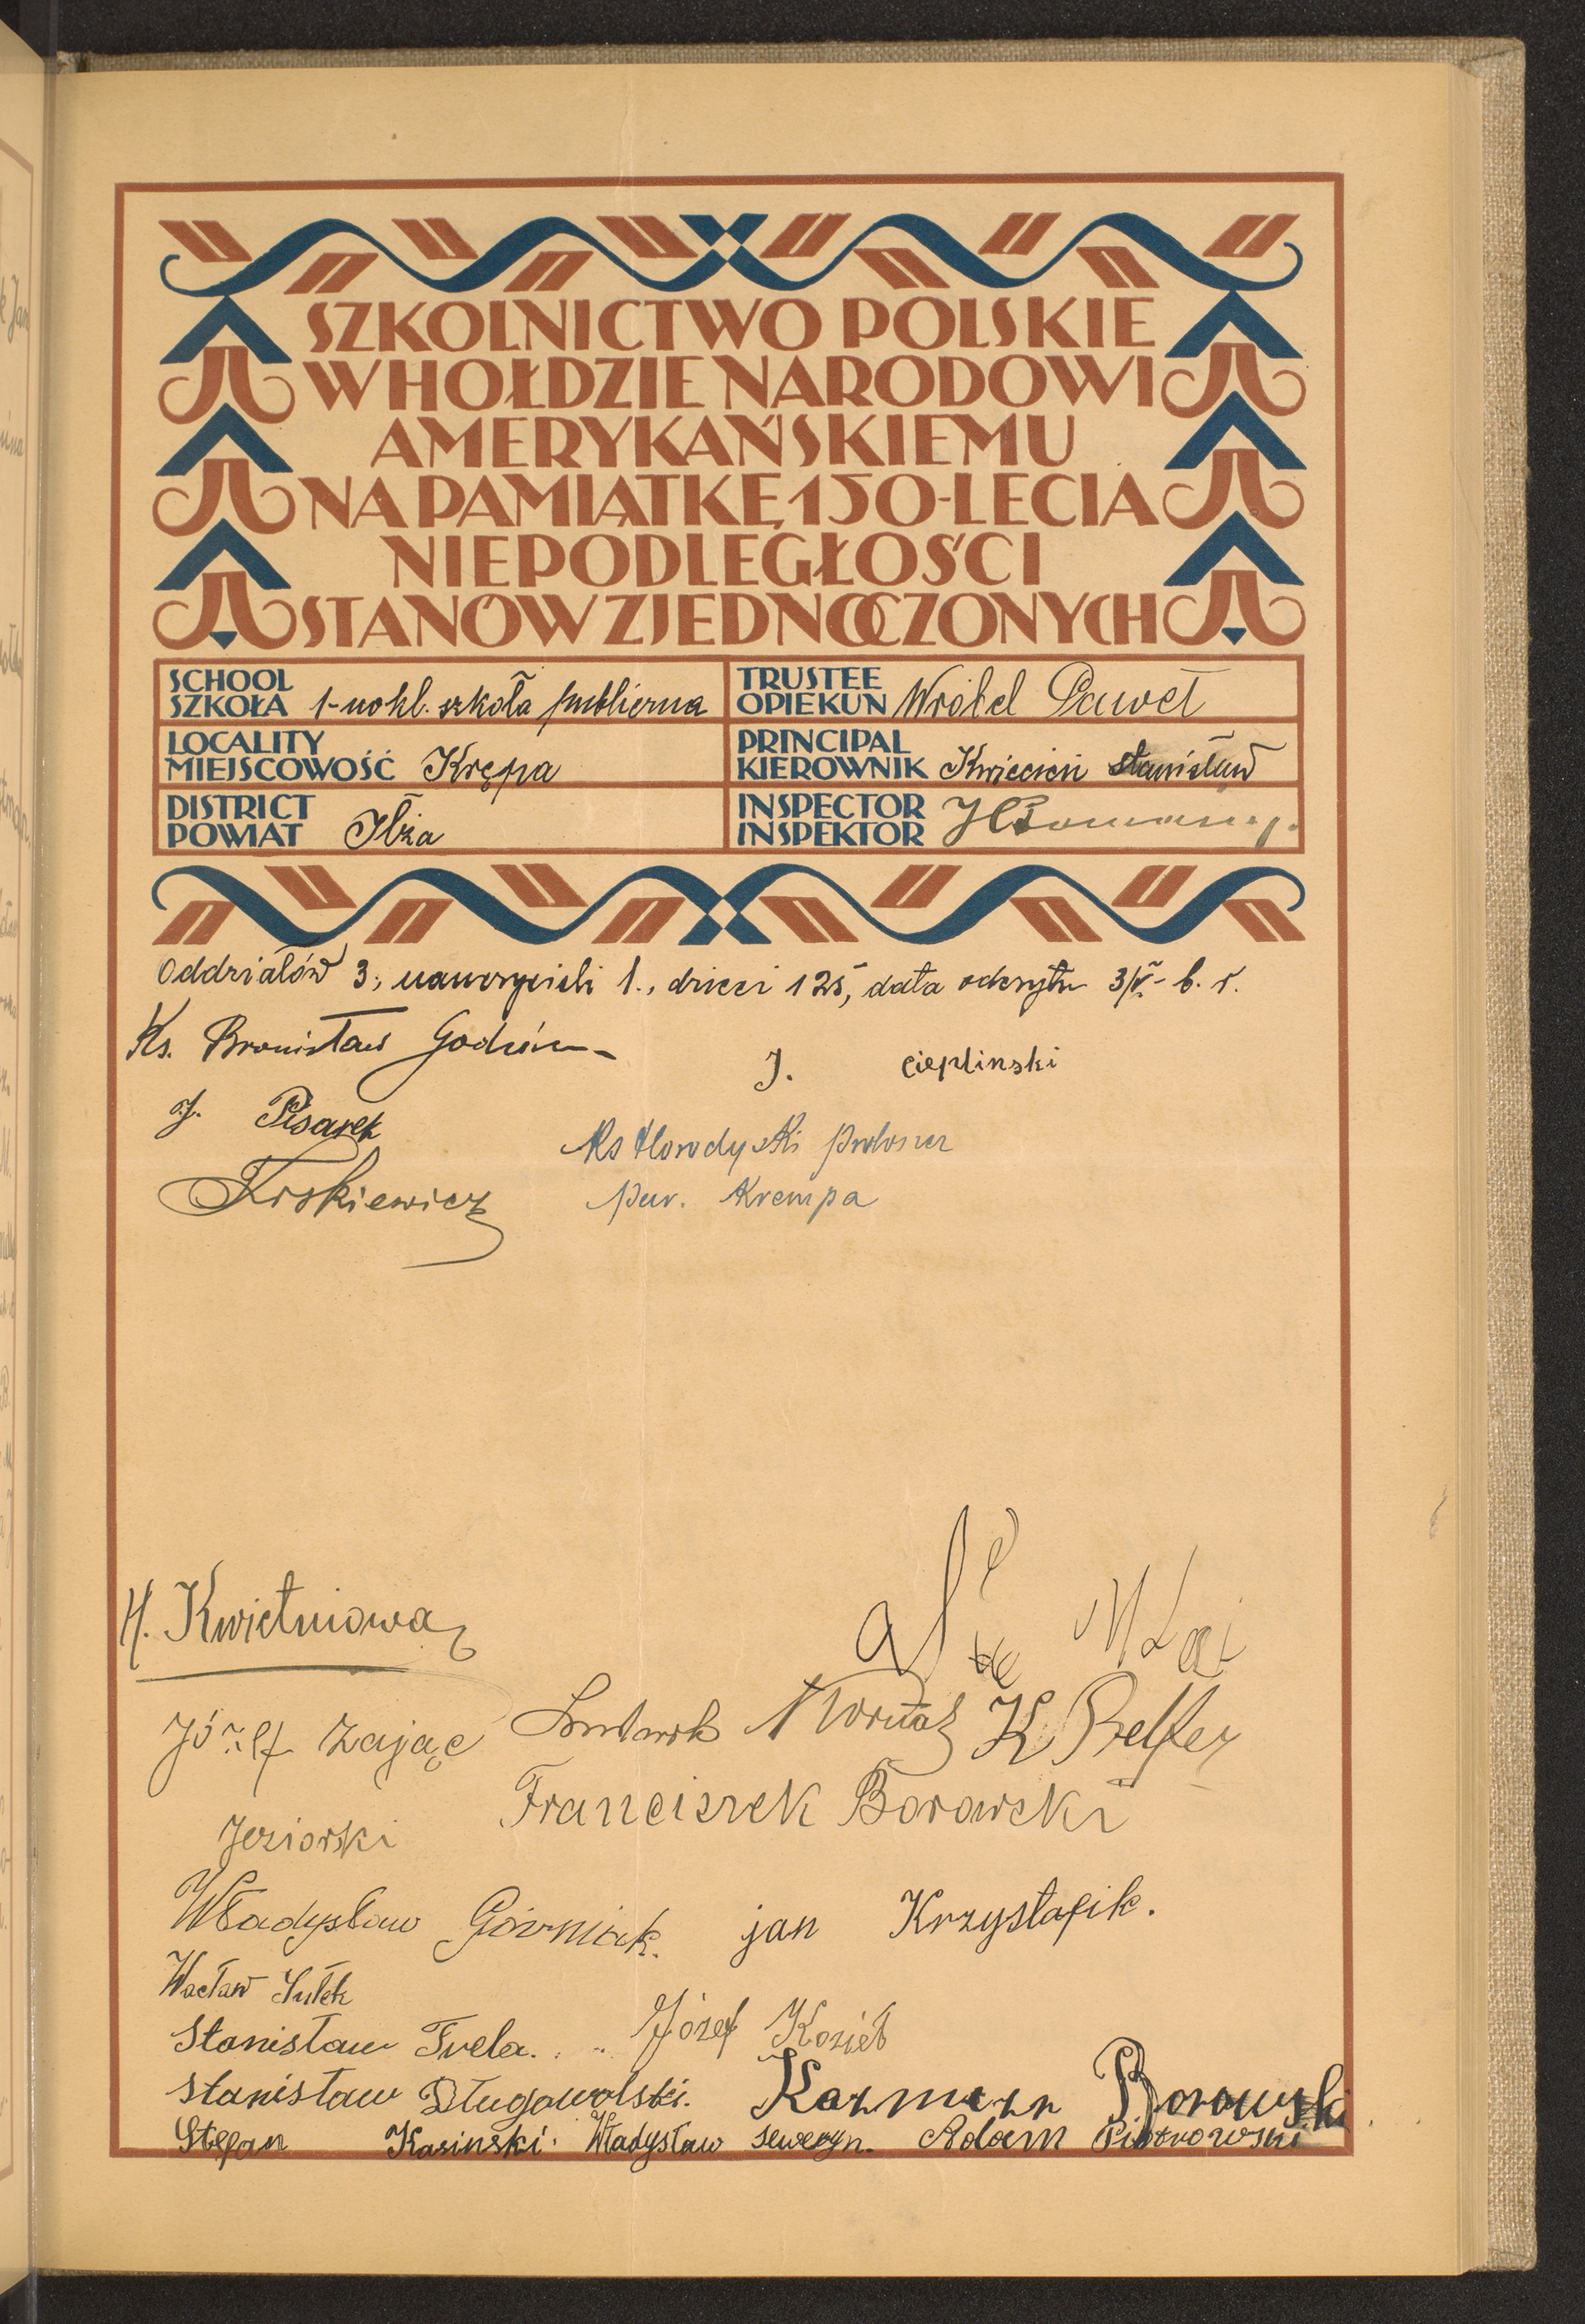 SZKOLNICTWO POLSKIE
W HOŁDZIE NARODOWI
AMERYKAŃSKIEMU
NA PAMIĄTKĘ 150-LECIA
NIEPODLEGŁOŚCI
STANÓW ZJEDNOCZONYCH
SCHOOL
SZKOŁA 1-no kl. szkoła publiczna
TRUSTEE
OPIEKUN Wróbel Paweł
LOCALITY
MIEJSCOWOŚĆ Krępa
PRINCIPAL
KIEROWNIK Kwiecień Stanisław
DISTRICT
POWIAT Iłża
INSPECTOR
INSPEKTOR
Oddziałów 3, nauczycieli 1., dzieci 125, data odczytu 3/V - b. r.
Ks. Bronisław
J. Cieplinski
J. Pisarek
Ks Horodyski proboszcz
par. Krempa
H. Kwietniowa
Józef Zając
K Belfer
Jeziorski
Franciszek Borowski
Władysław Górniak.
jan Krzystafik.
Wacław Sułek
Stanisław Frela.
Józef Kozieł
Stanisław Długowolski.
Kazmierz Borowski
Stefan Kasinski.
Władysław Seweryn.
Adam Piotrowski